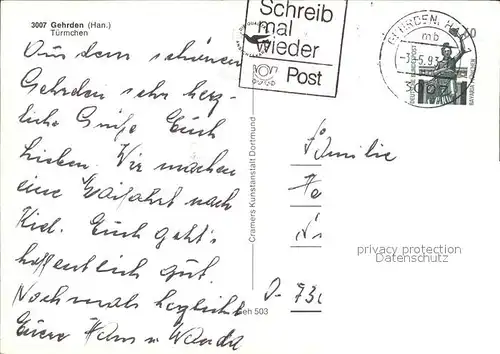 3007 Gehrden (Han.)
Türmchen
Aus dem schönen
Gehrden sehr herz-
liche Grüße Euch
Lieben. Wir machen
eine Maifahrt nach
Kiel. Euch geht's
hoffentlich gut.
Nochmals herzlichst
Eure Hans u. Wanda
Cramers Kunstanstalt Dortmund
Geh 503
Schreib
mal
wieder
Post
GEHRDEN, HAN 1
mb
-3.-5.93
3007
DEUTSCHE BUNDESPOST
BAVARIA MÜNCHEN
Familie
D-
privacy protection
Datenschutz